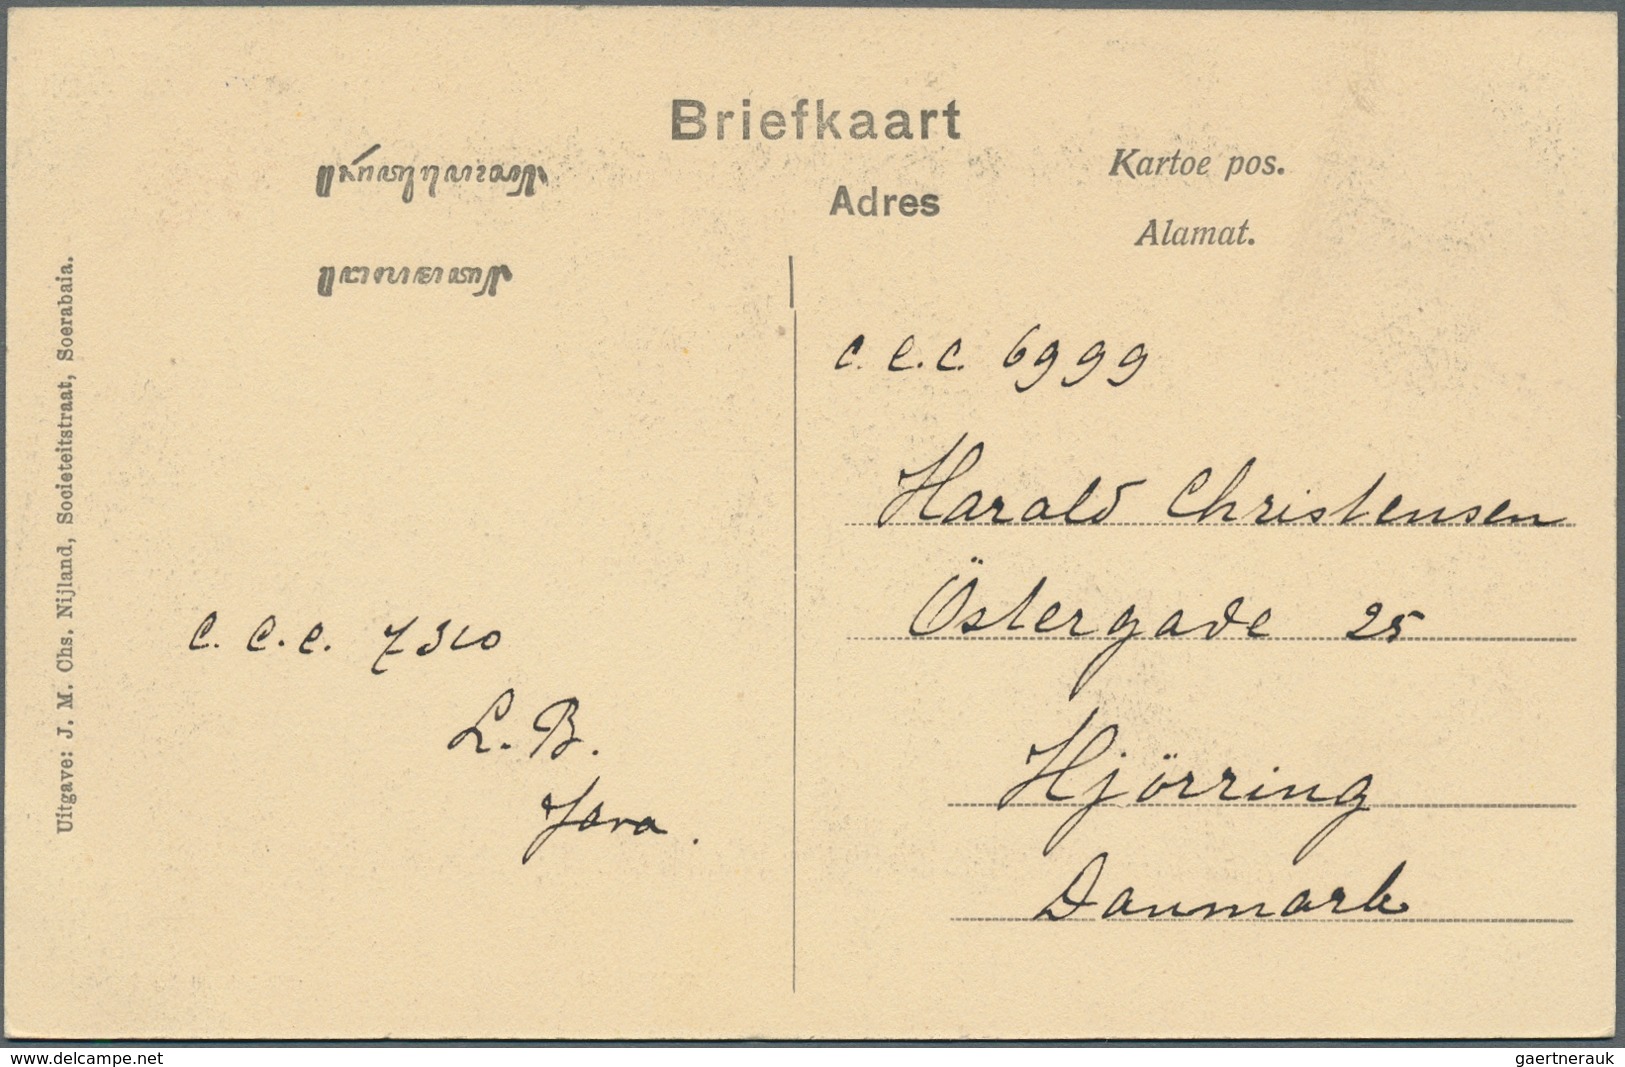 Briefkaart
Adres
Kartoe pos.
Alamat.
Uitgave: J. M. Chs. Nijland, Societeitstraat, Soerabaia.
C.C.C. 6999
Harald Christensen
Östergade 25
Hjörring
Danmark
C.C.C. 7310
L. B.
Java.
www.delcampe.net
gaertnerauk